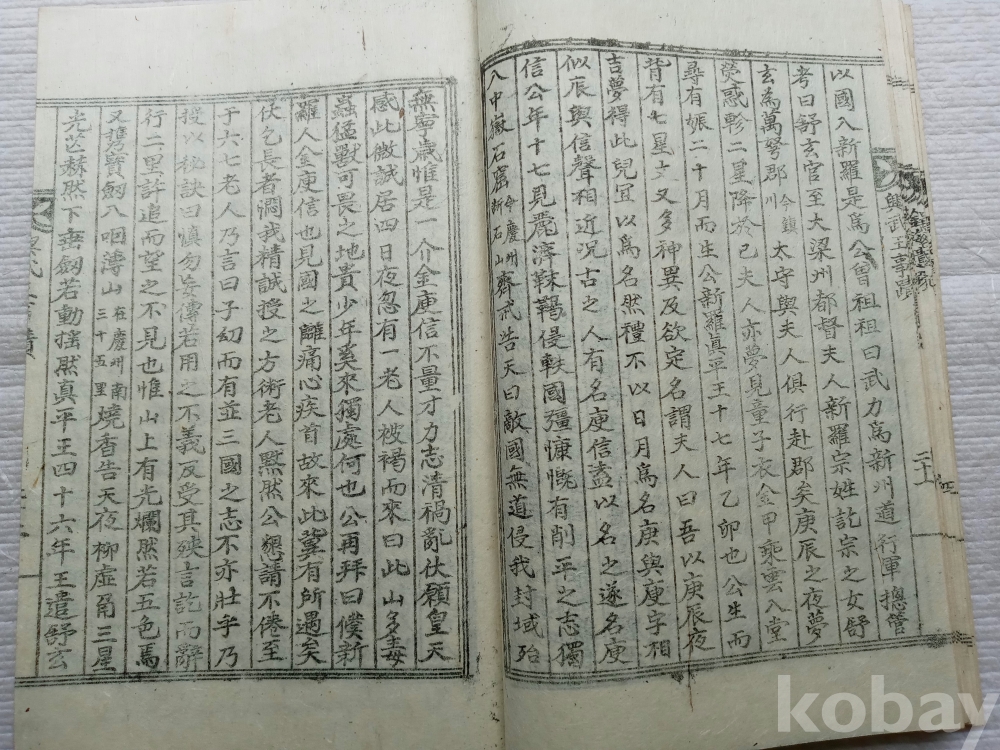 以國入新羅是爲公曾祖祖曰武力爲新州道行軍摠管
考曰舒玄官至大梁州都督夫人新羅宗姓訖宗之女舒
玄爲萬弩郡今鎮川太守與夫人俱行赴郡矣庚辰之夜夢
熒惑軫二星降於己夫人亦夢見童子衣金甲乘雲入堂
尋有娠二十月而生公新羅眞平王十七年乙卯也公生而
背有七星文又多神異及欲定名謂夫人曰吾以庚辰夜
吉夢得此兒宜以爲名然禮不以日月爲名庚與庾字相
似辰與信聲相近况古之人有名庾信盍以名之遂名庾
信公年十七見麗濟靺鞨侵軼國彊慷慨有削平之志獨
入中嶽石窟今慶州新石山齊戒告天曰敵國無道侵我封域殆
無寧歲惟是一介金庾信不量才力志清禍亂伏願皇天
感此微誠居四日夜忽有一老人被褐而來曰此山多毒
蟲猛獸可畏之地貴少年奚來獨處何也公再拜曰僕新
羅人金庾信也見國之讎痛心疾首故來此冀有所遇矣
伏乞長者憫我精誠授之方術老人黙然公懇請不倦至
于六七老人乃言曰子幼而有並三國之志不亦壯乎乃
授以秘訣曰愼勿妄傳若用之不義反受其殃言訖而辭
行二里許追而望之不見也惟山上有光爛然若五色焉
又携寶劒入咽薄山在慶州南三十五里燒香告天夜柳虛角三星
光芒赫然下垂劒若動搖然真平王四十六年王遣舒玄
興武王事蹟
kobay